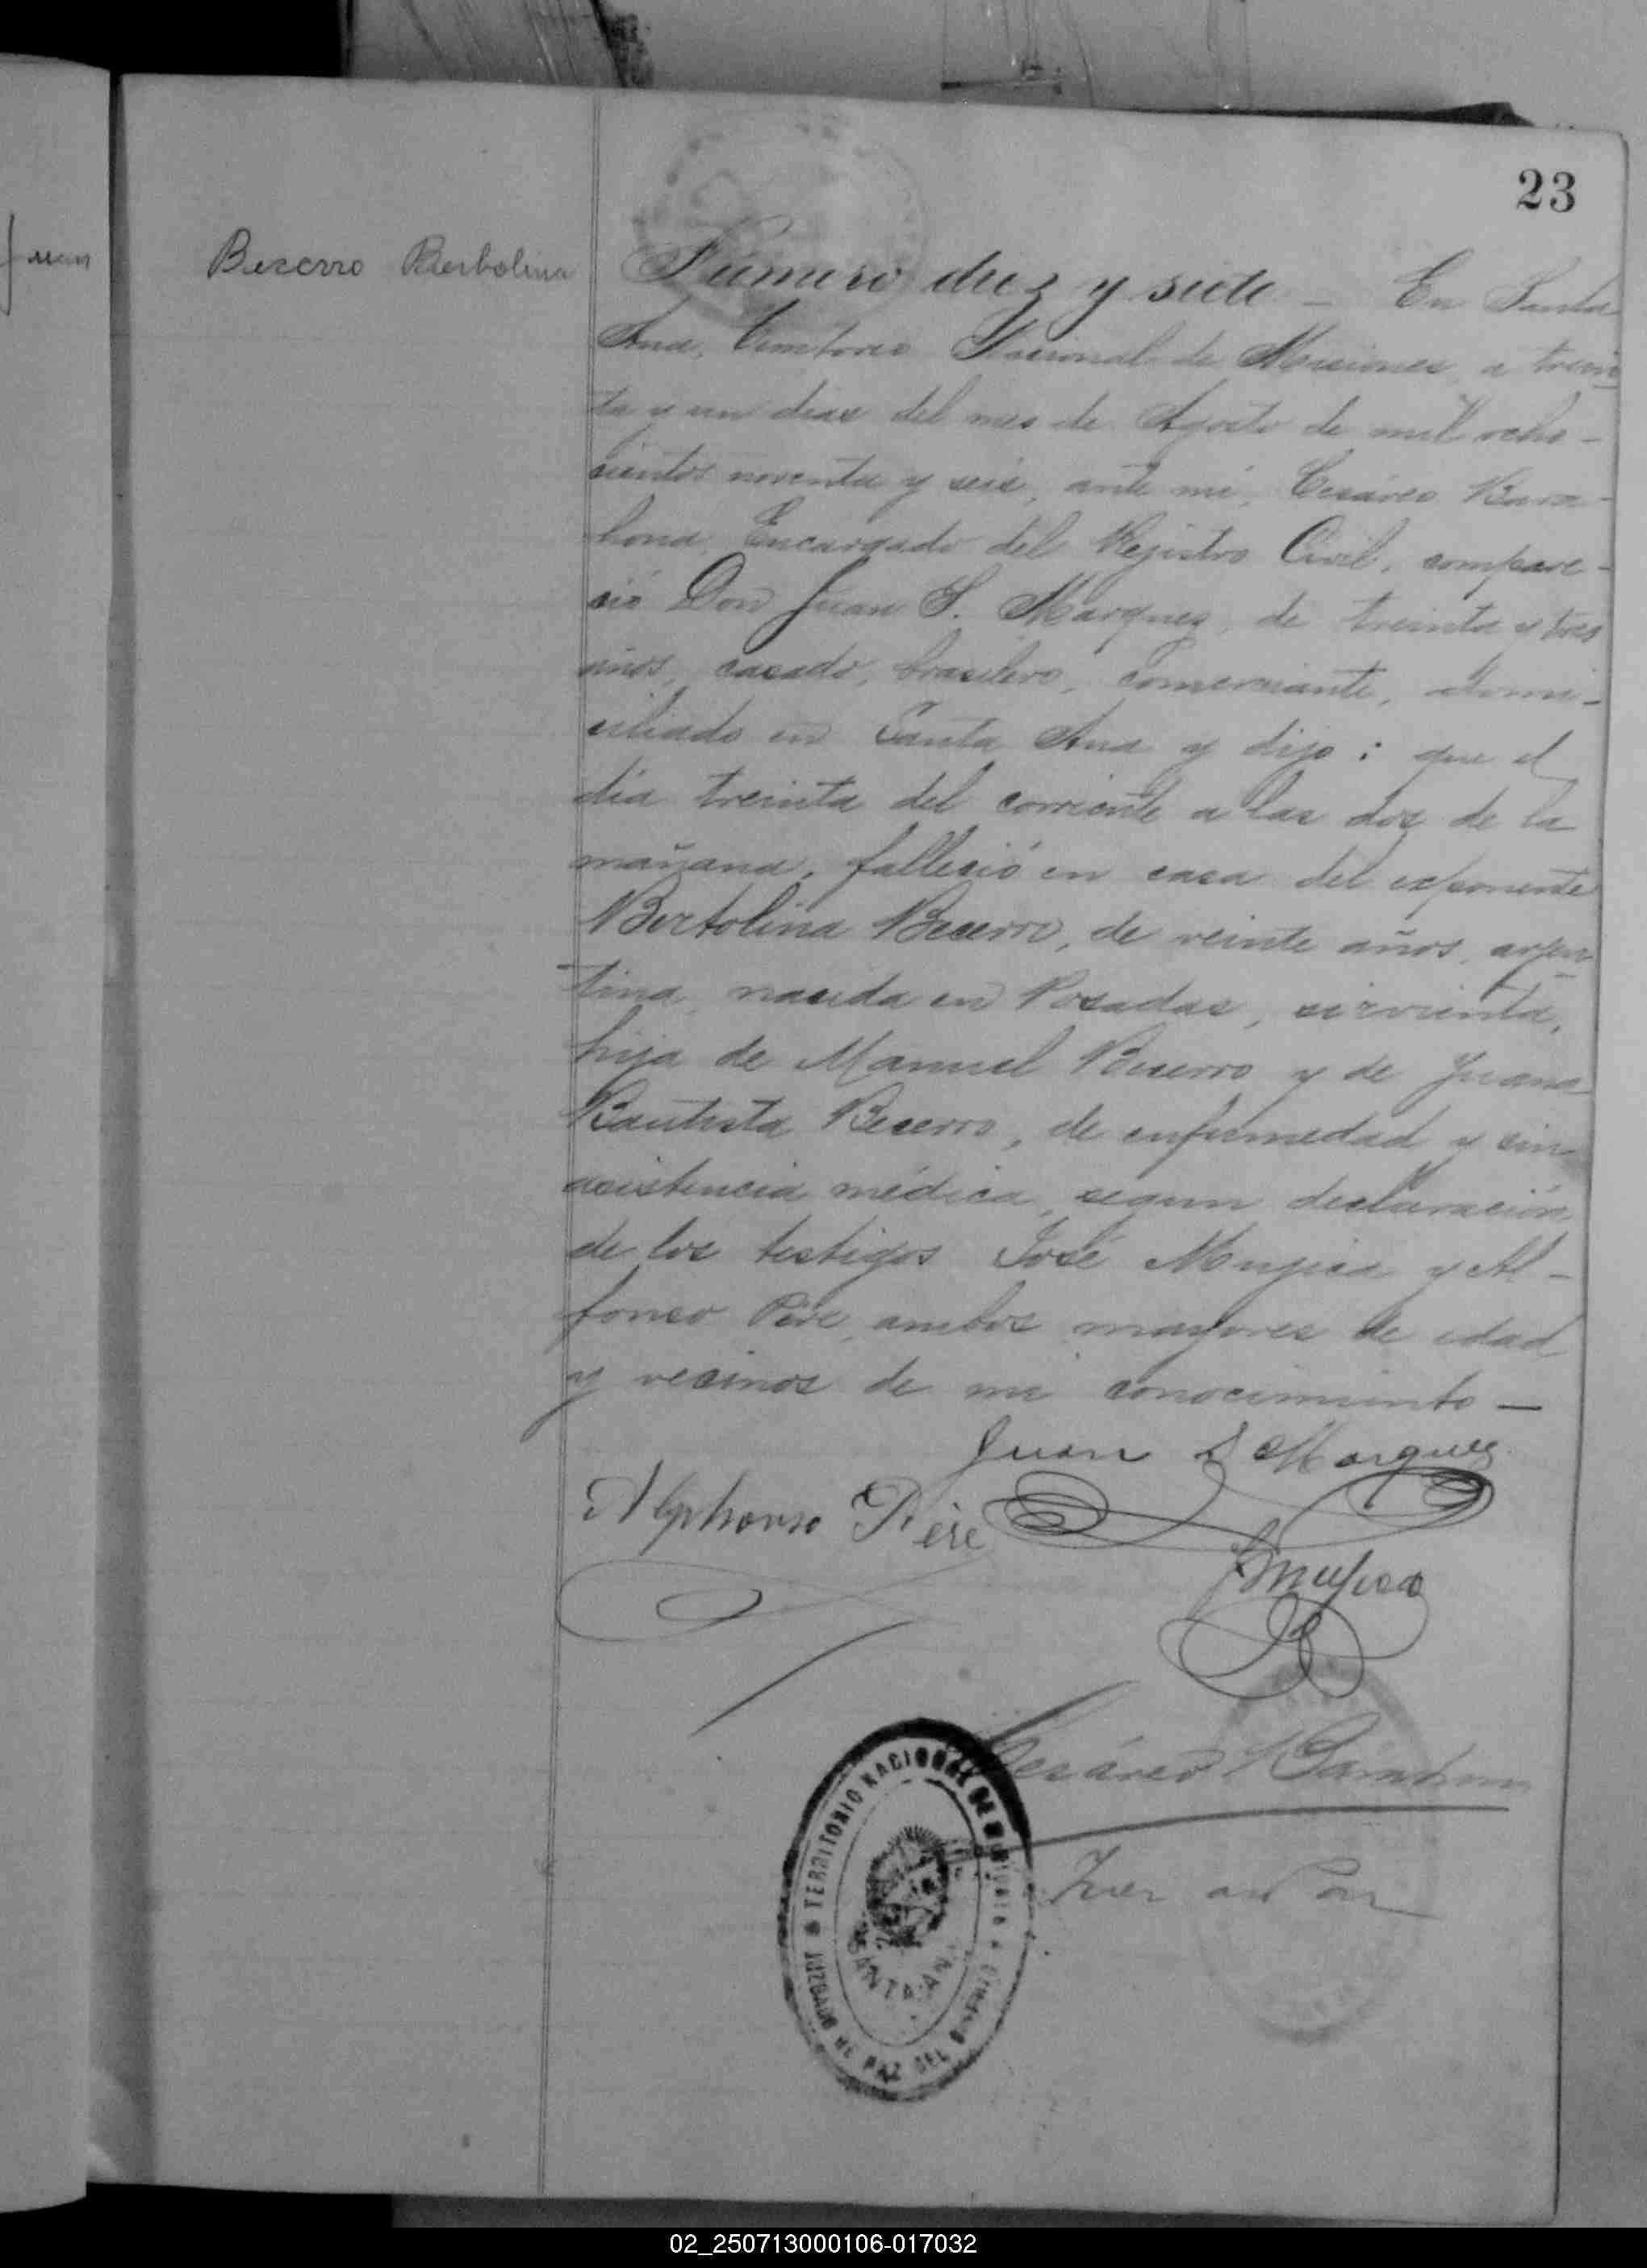 23
Juan
Becerro Bertolina
Número diez y siete - En Santa
Ana, Territorio Nacional de Misiones, a trein-
ta y un dias del mes de Agosto de mil ocho-
cientos noventa y seis, ante mi, Cesáreo Bara-
hona, Encargado del Rejistro Civil, compare-
ció Don Juan S. Marques, de treinta y tres
años, casado, brasilero, comerciante, domi-
ciliado en Santa Ana y dijo: que el
día treinta del corriente a las dos de la
mañana, falleció en casa del esponente
Bertolina Becerro, de veinte años, arjen-
tina, nacida en Posadas, sirvienta,
hija de Manuel Becerro y de Juana
Bautista Becerro, de enfermedad y sin
asistencia médica, segun declaración
de los testigos José Mujica y Al-
fonso Père, ambos mayores de edad
y vecinos de mi conocimiento —
Juan S Marques
Alphonso Père
J Mujica
Cesáreo Barahona
Juez de Paz
JUZGADO DE PAZ DEL TERRITORIO NACIONAL DE
SANTA ANA
02_250713000106-017032